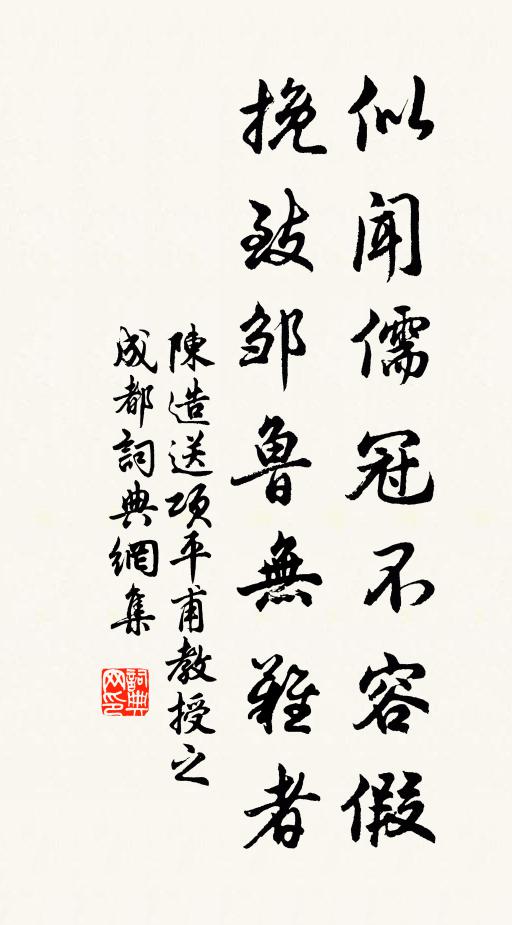 似聞儒冠不容假
挽致邹魯無難者
陳造送項平甫教授之
成都詞典網集
詞典网印